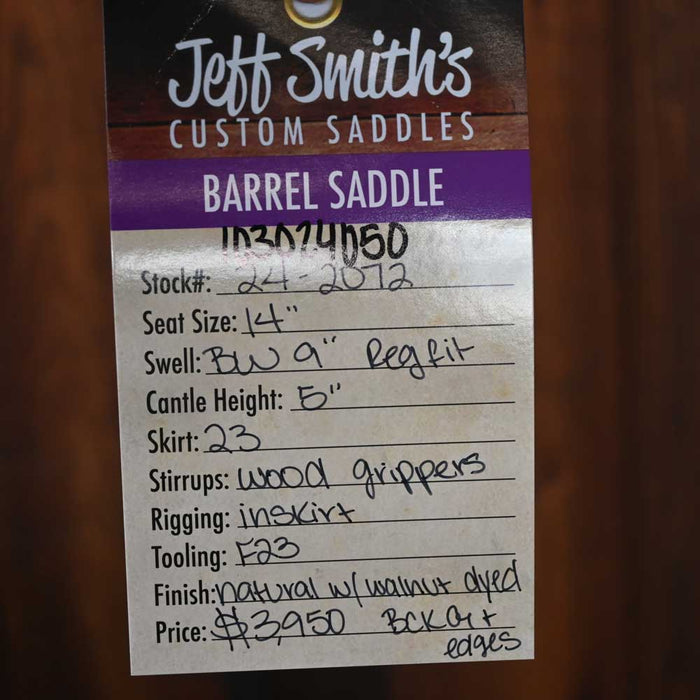 Jeff Smith's
CUSTOM SADDLES
BARREL SADDLE
103024050
Stock#: 24-2072
Seat Size: 14"
Swell: BW 9" Reg fit
Cantle Height: 5"
Skirt: 23
Stirrups: wood grippers
Rigging: inskirt
Tooling: F23
Finish: natural w/ walnut dyed
Price: $3,950 BCKGr +
edges